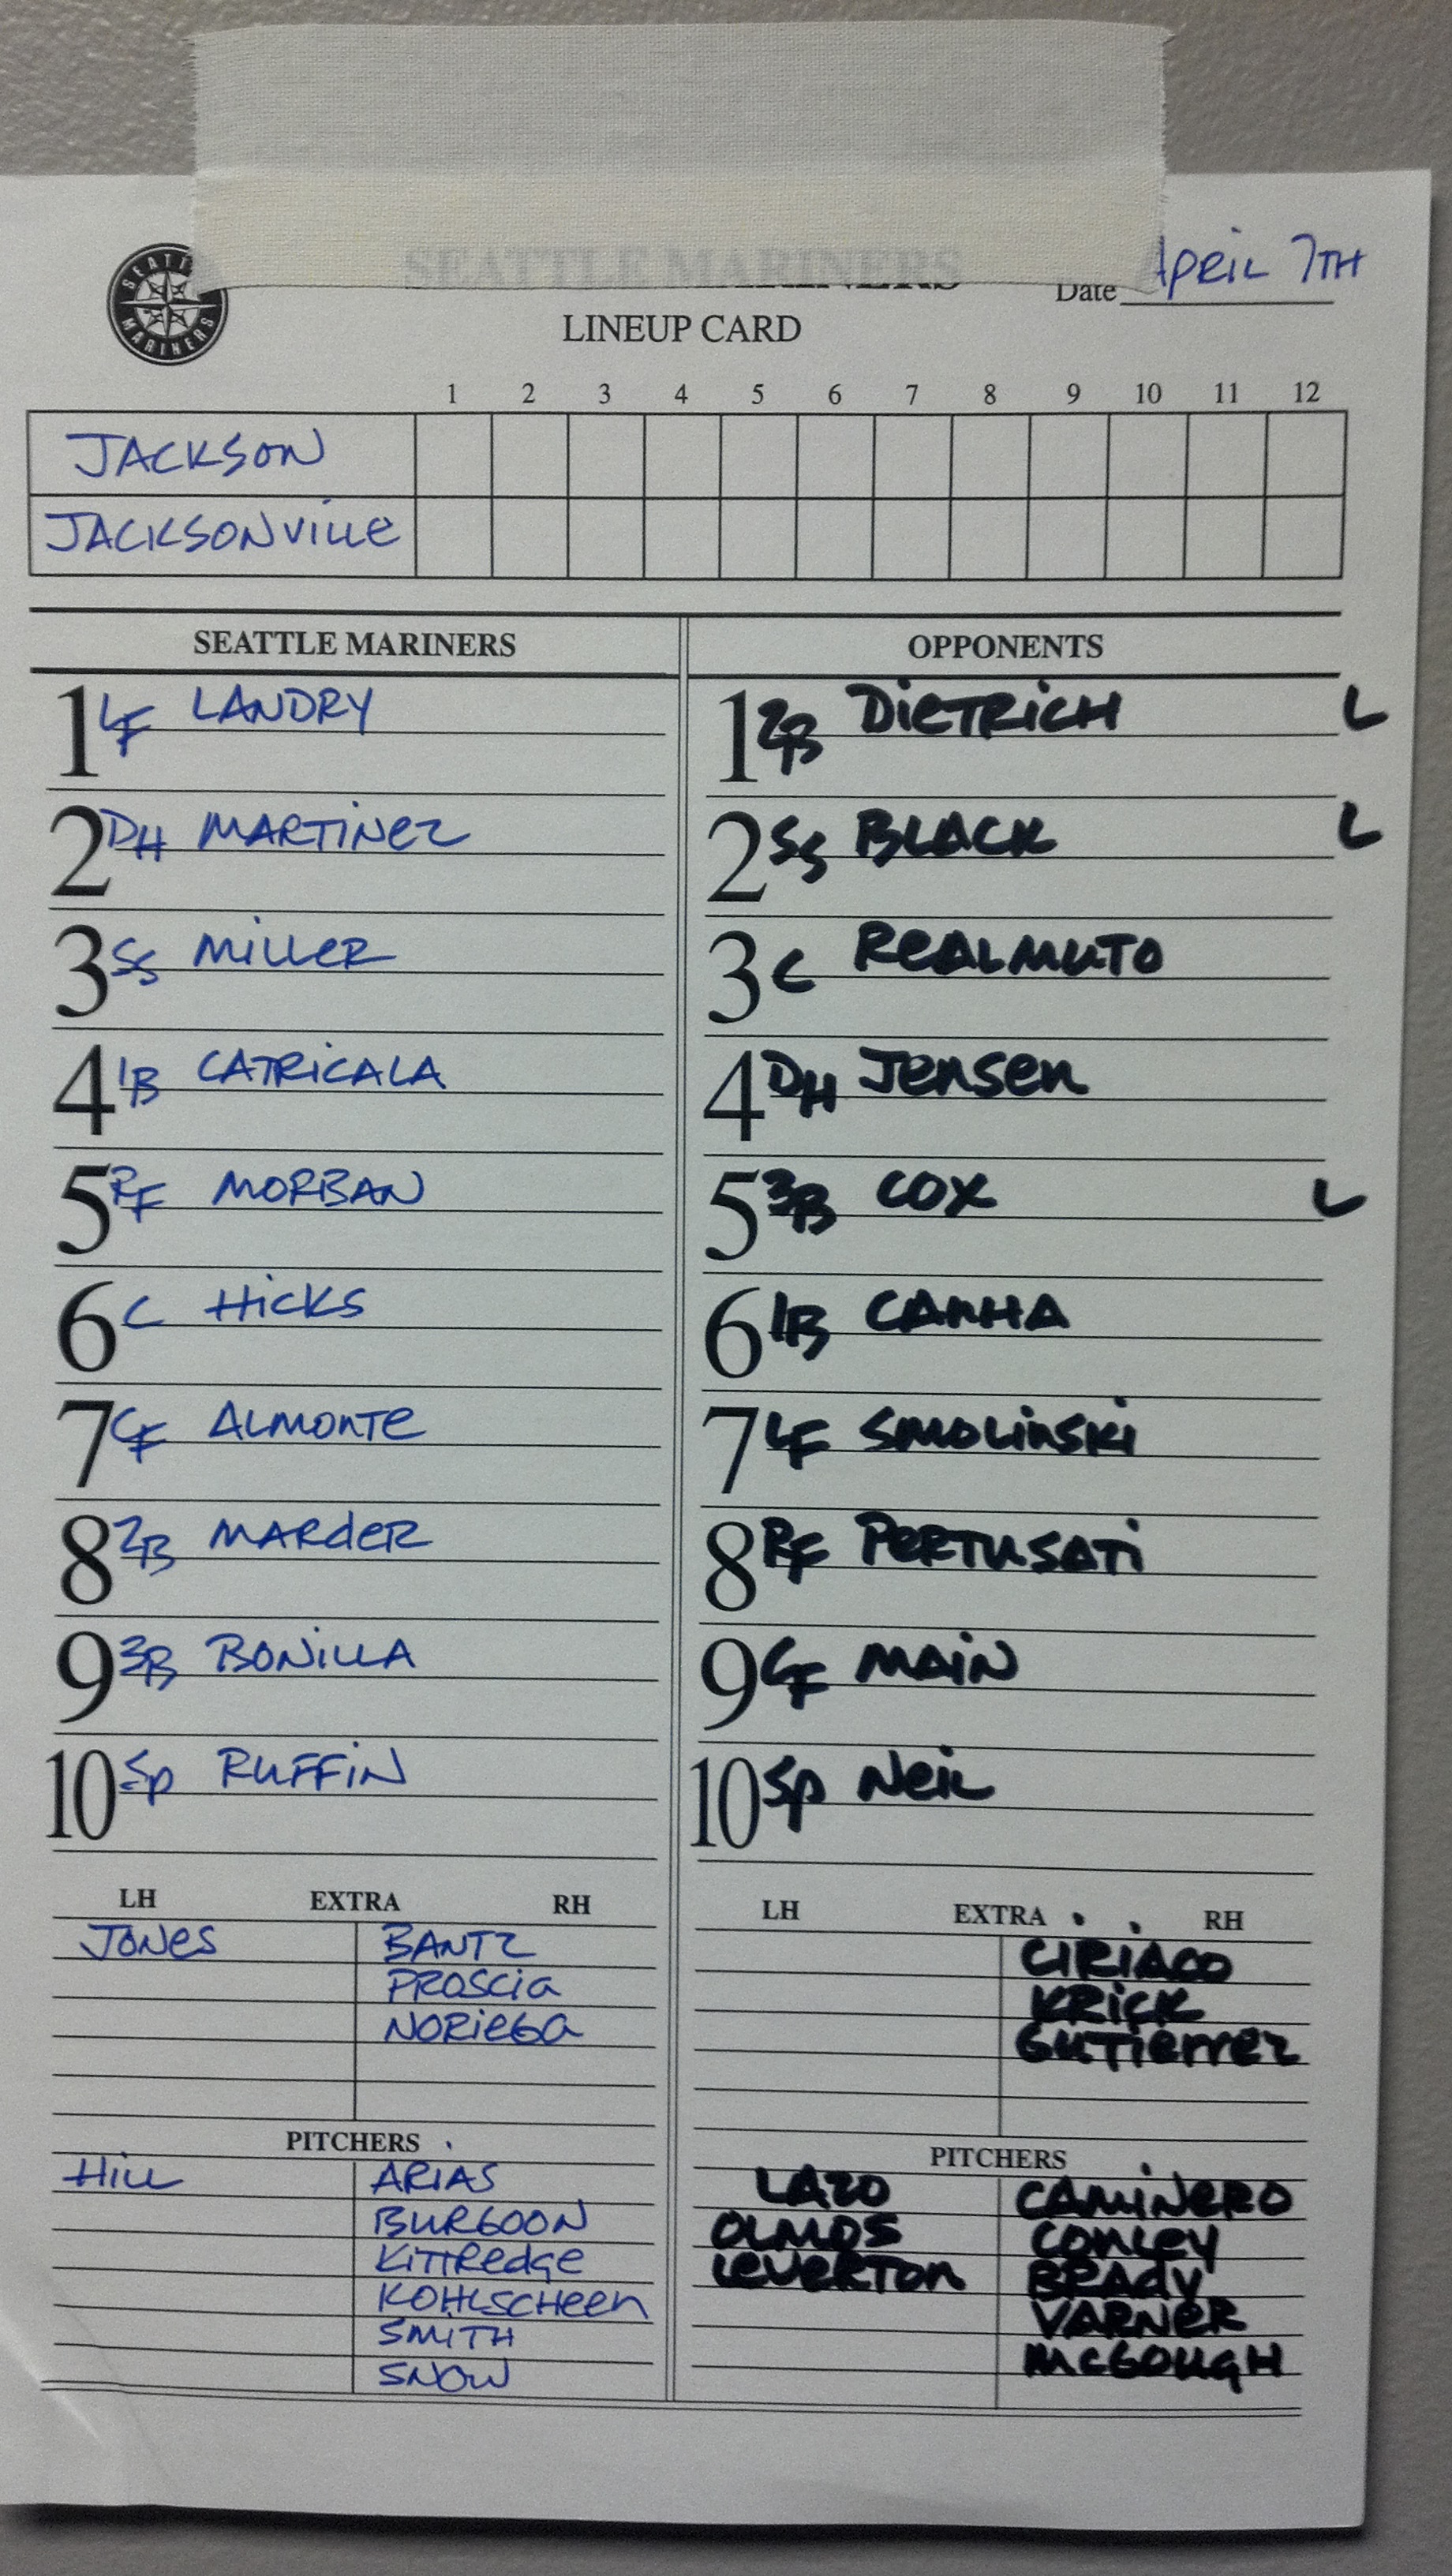 SEATTLE MARINERS
SEATTLE MARINERS
Date April 7TH
LINEUP CARD
1 2 3 4 5 6 7 8 9 10 11 12
JACKSON
JACKSONVILLE
SEATTLE MARINERS
1 LF LANDRY
2 DH MARTINEZ
3 SS MILLER
4 1B CATRICALA
5 RF MORBAN
6 C HICKS
7 CF ALMONTE
8 2B MARDER
9 3B BONILLA
10 SP RUFFIN
LH EXTRA RH
JONES BANTZ
PROSCIA
NORIEGA
PITCHERS
HILL ARIAS
BURGOON
KITTREDGE
KOHLSCHEEN
SMITH
SNOW
OPPONENTS
1 2B DIETRICH L
2 SS BLACK L
3 C REALMUTO
4 DH JENSEN
5 3B COX L
6 1B CANHA
7 LF SMOLINSKI
8 RF PERTUSATI
9 CF MAIN
10 SP NEIL
LH EXTRA RH
CIRIACO
KRICK
GUTIERREZ
PITCHERS
LAZO CAMINERO
OLMOS CONLEY
LEVERTON BRADY
VARNER
McGOUGH